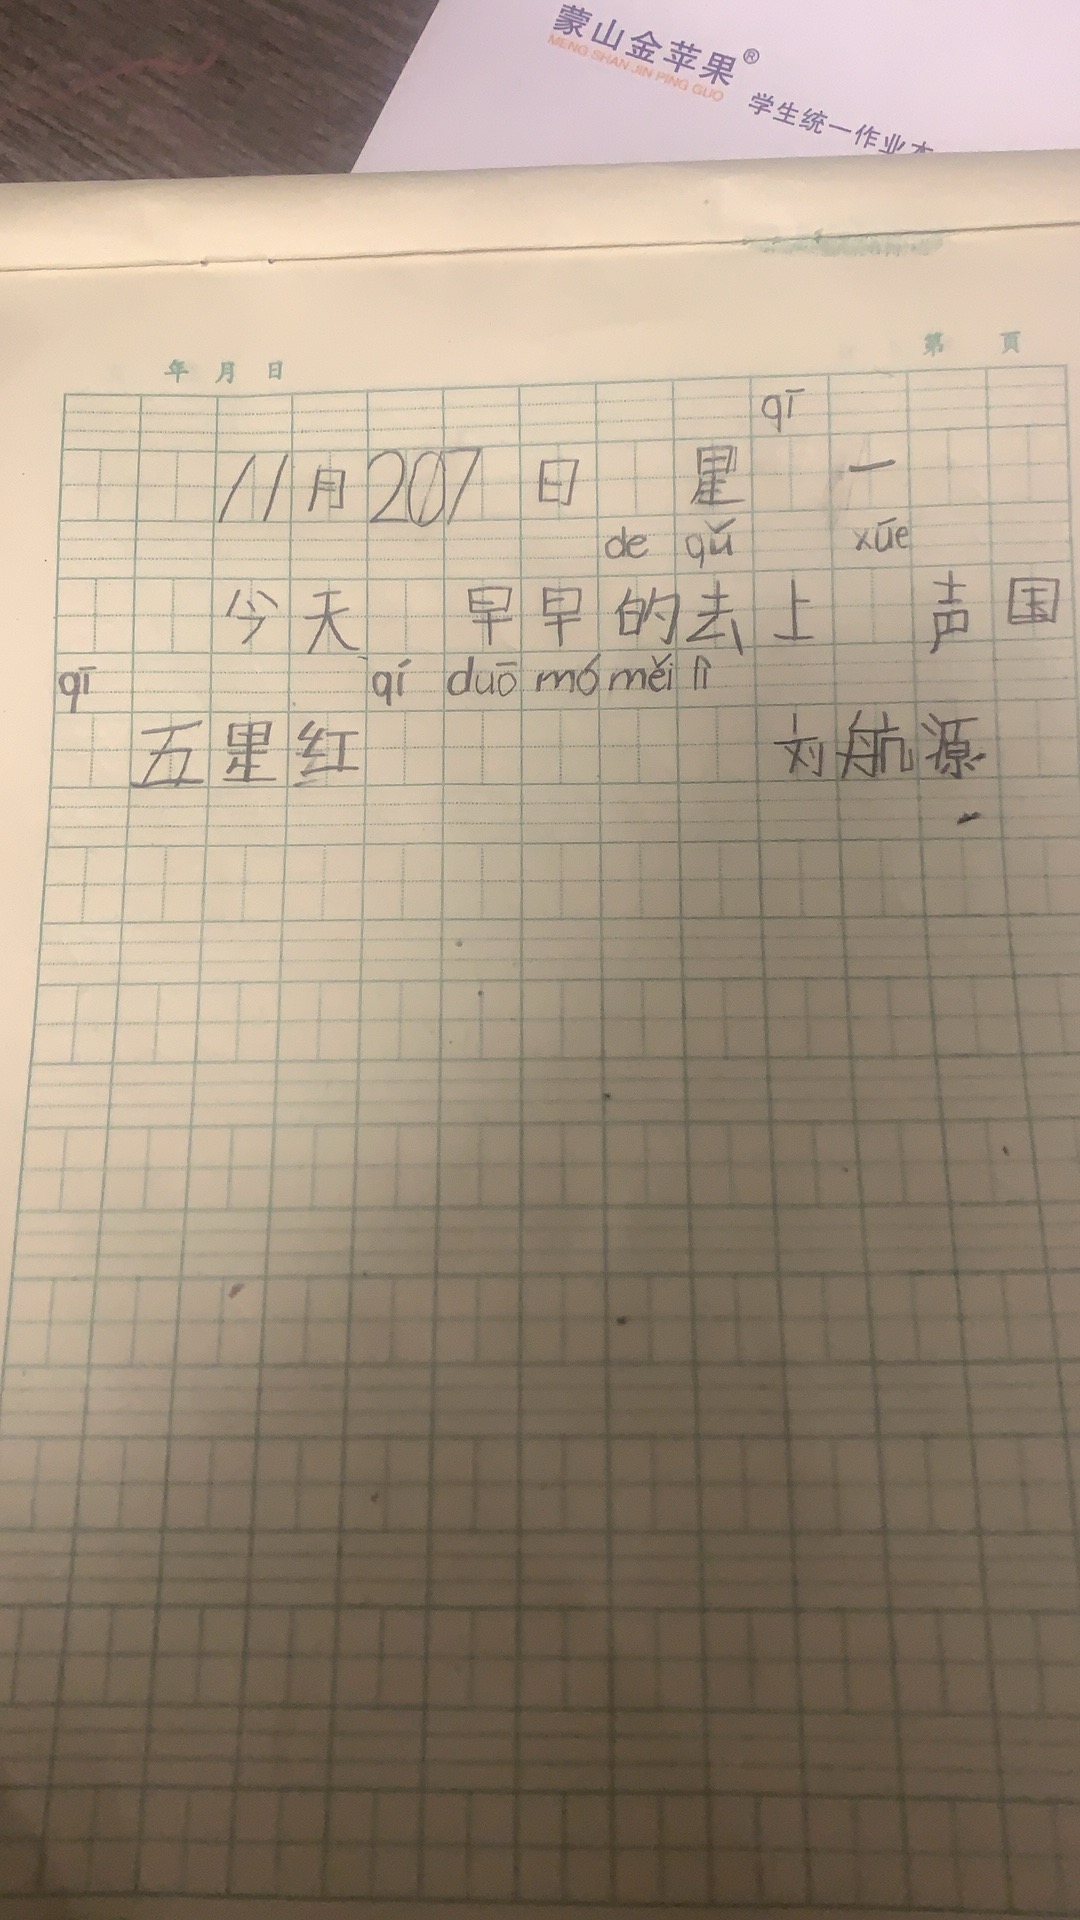 蒙山金苹果®
MENG SHAN JIN PING GUO
学生统一作业本
年 月 日
第 页
qī
11月207日 星 一
de qǔ xūe
今天 早早的去上 声国
qī qí duō mó měi lì
五星红 刘航源